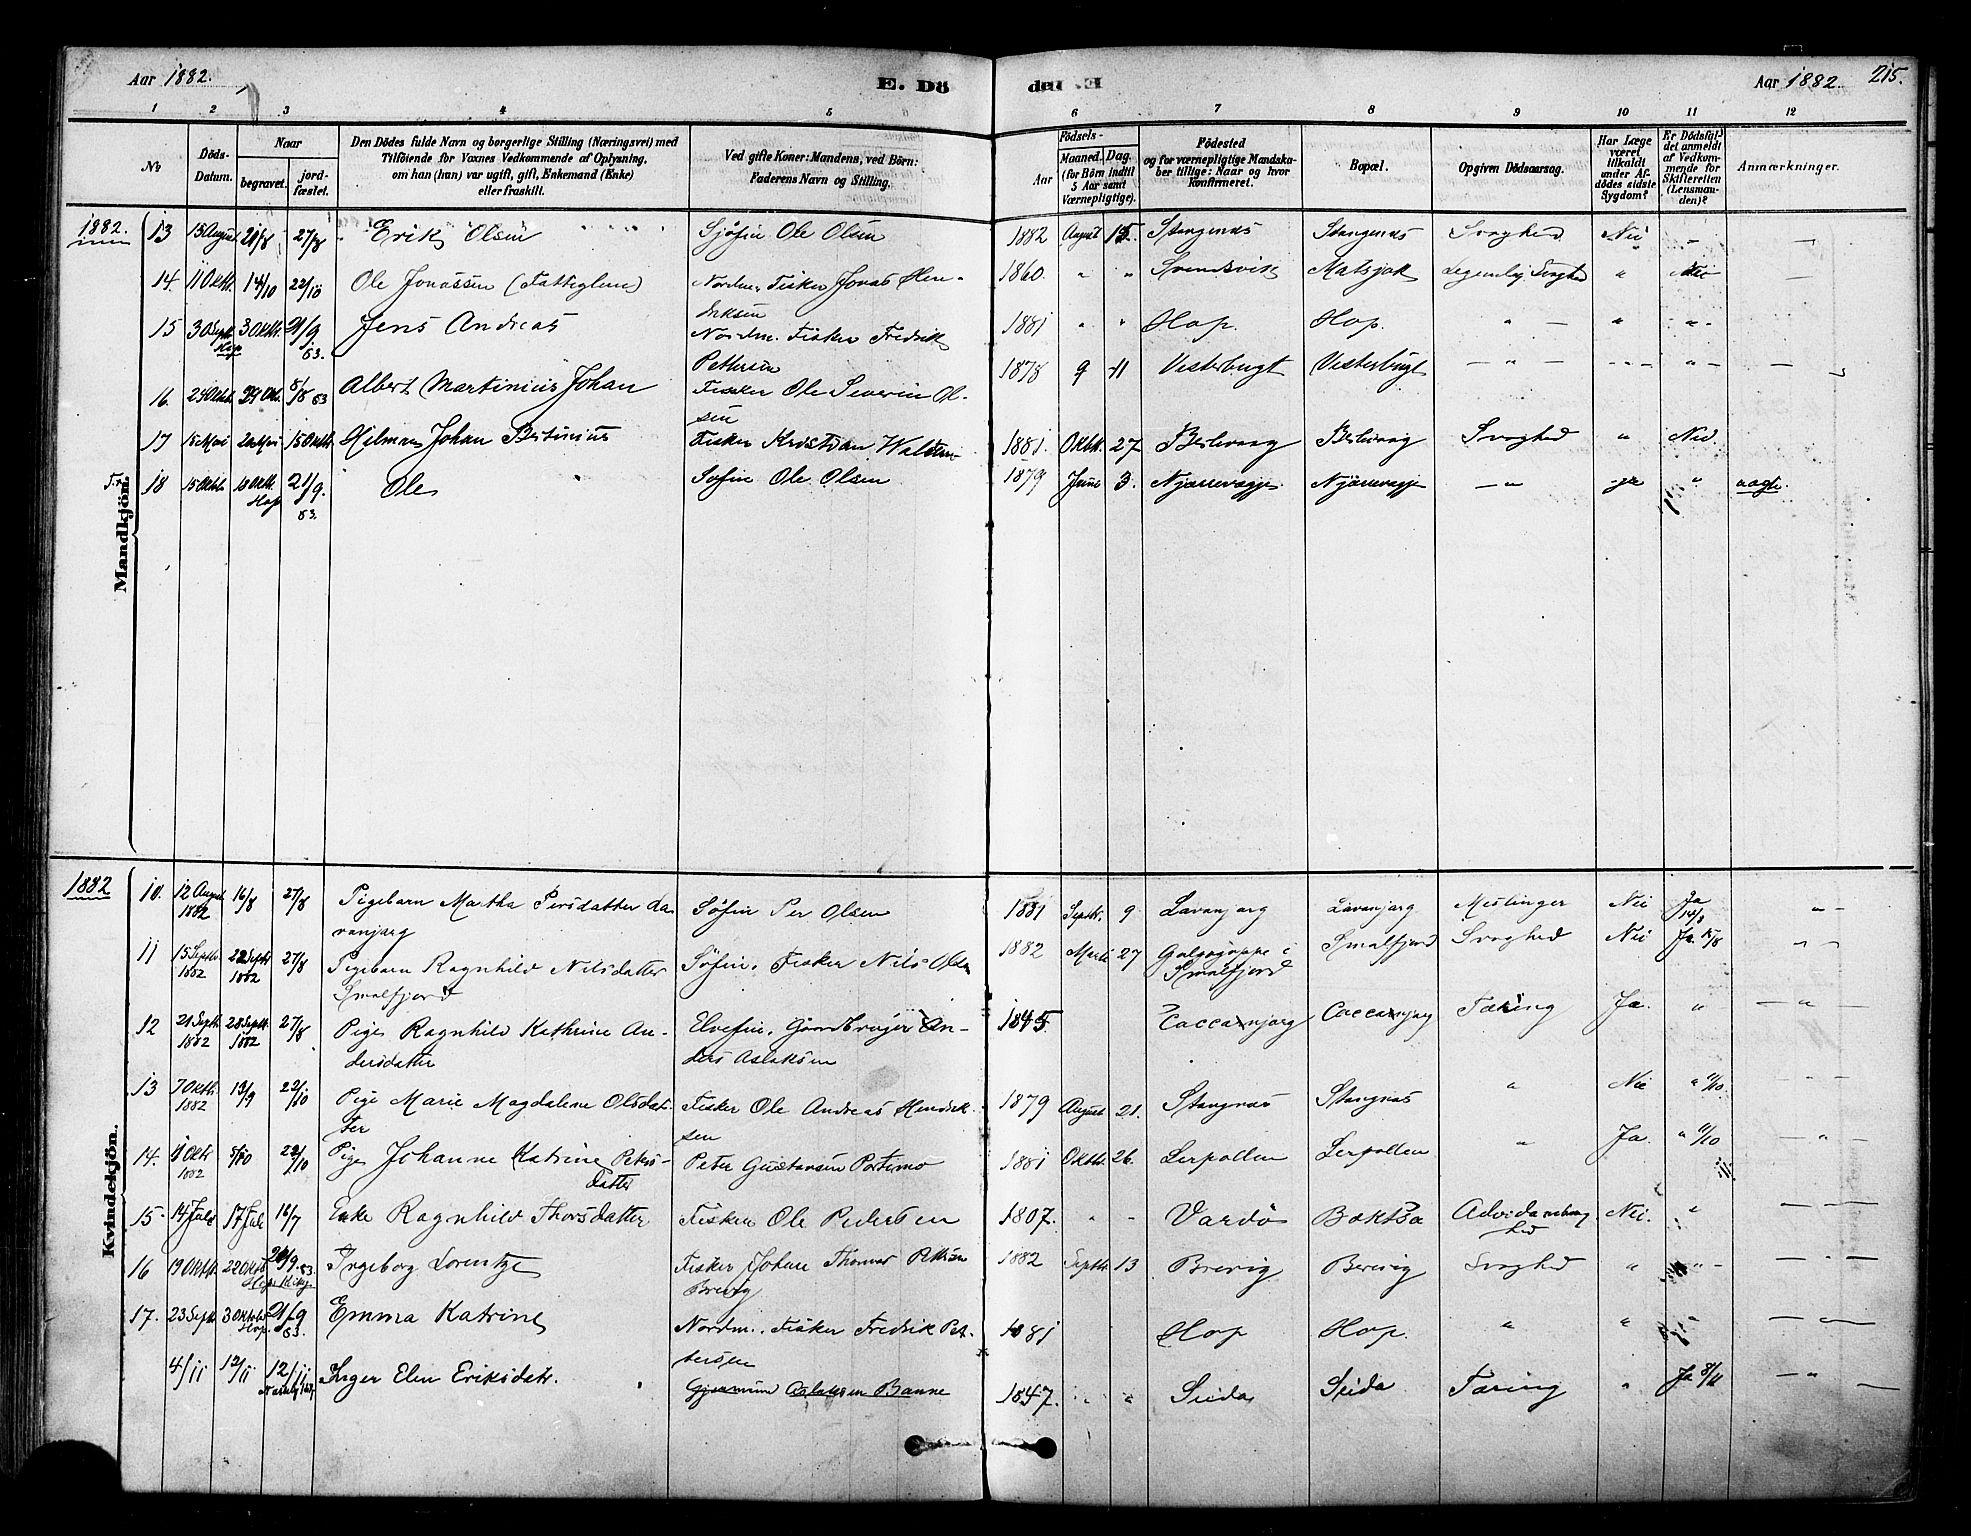 Aar 1882.
E. Dö
den E.
Aar 1882.
215.
1 2 3 4 5 6 7 8 9 10 11 12
No
Döds-Datum.
Naar
begravet.
jordfæstet.
Den Dödes fulde Navn og borgerlige Stilling (Næringsvei) med
Tilföiende for Voxnes Vedkommende af Oplysning,
om han (hun) var ugift, gift, Enkemand (Enke)
eller fraskilt.
Ved gifte Koner: Mandens, ved Börn:
Faderens Navn og Stilling.
Födsels-
Aar
Maaned. Dag.
(for Börn indtil
5 Aar samt
Værnepligtige).
Födested
og for værnepligtige Mandska-
ber tillige: Naar og hvor
konfirmeret.
Bopæl.
Opgiven Dödsaarsag.
Har Læge
været
tilkaldt
under Af-
dödes sidste
Sygdom?
Er Dödsfal-
det anmeldt
af Vedkom-
mende for
Skifteretten
(Lensman-
den)?
Anmærkninger.
Mandkjön.
1882. 13 15 August 21/8 27/8 Erik Olsen Sjöfin Ole Olsen 1882 August 15 Stangenæs Stangenæs Svaghed Nei
14. 11 Oktb. 14/10 22/10 Ole Jonassen (Fattiglem) Nordm. Fisker Jonas Hen-
driksen 1860. " " Svendsvik Matsjok Legemlig Svaghed " Nei —
15 30 Septb. 3 Oktb. 21/9 83. Jens Andreas Nordm. Fisker Fredrik
Hop
Pettersen 1881 " " Hop. Hop. " — " "
16. 24 Oktb. 29 Okt. 5/8 83 Albert Martinius Johan Fisker Ole Severin Ol-
sen 1878 9 11 Vesterbugt Vesterbugt — " — —
17 15 Mai 20 Mai 15 Oktb. Hilmar Johan Bertinius Fisker Kristian 1881. Oktb. 27 Berlevaag Berlevaag Svaghed "
18 15 Oktb. 18 Oktb. 21/9. 83. Ole Söfin Ole Olsen 1879 Juni 3. Njarrevagge Njarrevagge — "
Hop
Kvindekjön.
1882 10. 12 August 1882 16/8 27/8 Pigebarn Martha Persdatter La-
vanjarg Söfin Per Olsen 1881 Septbr. 9 Lavanjarg Lavanjarg Meslinger Nei Ja 14/8 " —
11 15 Septb. 1882 22 Septb. 1882 27/8 Pigebarn Ragnhild Nilsdatter
Smalfjord Söfin. Fisker Nils Olsen 1882 Marts 27 i
Smalfjord Smalfjord Svaghed Nei Ja. 15/8 "
12 21 Septb. 1882 28 Septb. 1882 27/8 Pige Ragnhild Kathrine An-
dersdatter Elvefin. Gaardbruger An-
ders Aslaksen 1845 Caccanjarg Caccanjarg Tæring Ja. " — " —
13 7 Oktb. 1882 22/10 Pige Marie Magdalene Olsdat-
ter Fisker Ole Andreas Hendrik-
sen 1879 August 21. Stangnæs Stangnæs " Nei " 11/10 " —
14. Oktb. 1882 8/10 22/10 Pige Johanne Katrine Peters-
datter Peter Gustavsen Portimo 1881 Oktb. 26. Lerpollen Lerpollen " Ja. " 11/10 — " —
15 14 Juli 17 Juli 16/7 Enke Ragnhild Thorsdatter Fisker Ole Pedersen 1807. " " Vardö Boktsa Nei. "
16 19 Oktb. 22 Oktb. 21/9. 83. Ingeborg Lorentze Fisker Johan Thomas Pettersen
Brevig 1882 Septbr. 13 Brevig Brevig Svaghed " " —
17. 23 Septb. 3 Oktober 21/9 83. Emma Katrine Nordm. Fisker Fredrik Pet-
Hop.
tersen 1881 Hop Hop. " "
4/11 12/11 12/11 Inger Elen Eriksdatr. Aslaksen Banne 1847. " " Seida Seida Tæring " Ja 8/11 — " —